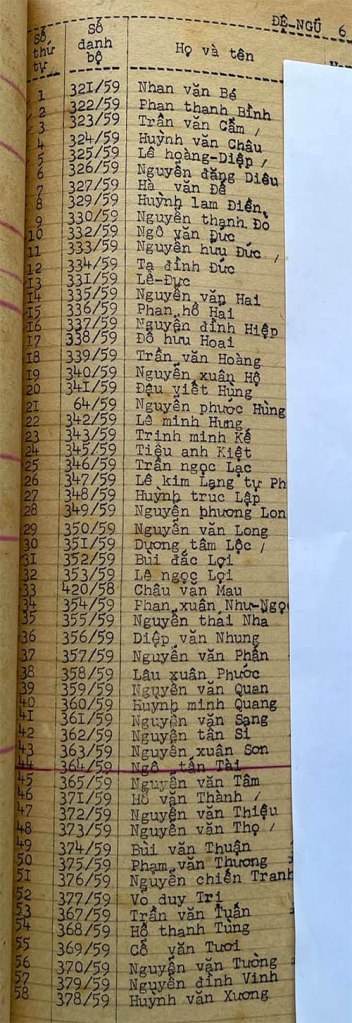 ĐỆ-NGŨ 6
Số thứ tự Số danh bộ Họ và tên
1 321/59 Nhan văn Bé
2 322/59 Phan thanh Bình
3 323/59 Trần văn Cẩm /
4 324/59 Huỳnh văn Châu
5 325/59 Lê hoàng-Diệp /
6 326/59 Nguyễn đăng Diêu
7 327/59 Hà văn Đê
8 329/59 Huỳnh lam Điền
9 330/59 Nguyễn thạnh Đô
10 332/59 Ngô văn Đức
11 333/59 Nguyễn hữu Đức /
12 334/59 Tạ đình Đức
13 331/59 Lê-Đức
14 335/59 Nguyễn văn Hai
15 336/59 Phan hồ Hải
16 337/59 Nguyễn đình Hiệp
17 338/59 Đỗ hưu Hoai
18 339/59 Trần văn Hoàng
19 340/59 Nguyễn xuân Hộ
20 341/59 Đậu viết Hùng
21 64/59 Nguyễn phước Hùng
22 342/59 Lê minh Hưng
23 343/59 Trinh minh Kế
24 345/59 Tiêu anh Kiệt
25 346/59 Trần ngọc Lạc
26 347/59 Lê kim Lang tự Ph
27 348/59 Huỳnh truc Lập
28 349/59 Nguyễn phương Lon
29 350/59 Nguyễn văn Long
30 351/59 Dương tâm Lộc /
31 352/59 Bùi đắc Lợi
32 353/59 Lê ngọc Lợi
33 420/58 Châu văn Mau
34 354/59 Phan xuân Như-Ngọ
35 355/59 Nguyễn thái Nha
36 356/59 Diệp văn Nhung
37 357/59 Nguyễn văn Phấn
38 358/59 Lâu xuân Phước
39 359/59 Nguyễn văn Quan
40 360/59 Huỳnh minh Quang
41 361/59 Nguyễn văn Sang
42 362/59 Nguyễn tấn Sĩ
43 363/59 Nguyễn xuân Sơn
44 364/59 Ngô tấn Tài
45 365/59 Nguyễn văn Tâm
46 371/59 Hồ văn Thành /
47 372/59 Nguyễn văn Thiệu
48 373/59 Nguyễn văn Thọ /
49 374/59 Bùi văn Thuận
50 375/59 Phạm văn Thương
51 376/59 Nguyễn chiến Tranh
52 377/59 Võ duy Trị
53 367/59 Trần văn Tuấn
54 368/59 Hồ thanh Tùng
55 369/59 Cổ văn Tươi
56 370/59 Nguyễn văn Tường
57 379/59 Nguyễn đình Vinh
58 378/59 Huỳnh văn Xương